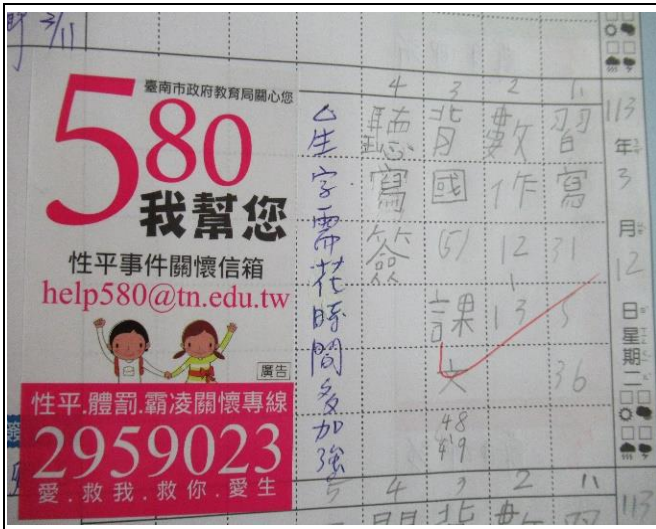 3/11
臺南市政府教育局關心您
580
我幫您
性平事件關懷信箱
help580@tn.edu.tw
廣告
性平.體罰.霸凌關懷專線
2959023
愛.救我.救你.愛生
113年3月12日星期二
1. 習寫31 5 36
2 數作12 13
3 背國 課文 48 49
4 聽寫簽
△生字需花時間多加強
113
11
2
3
4
5